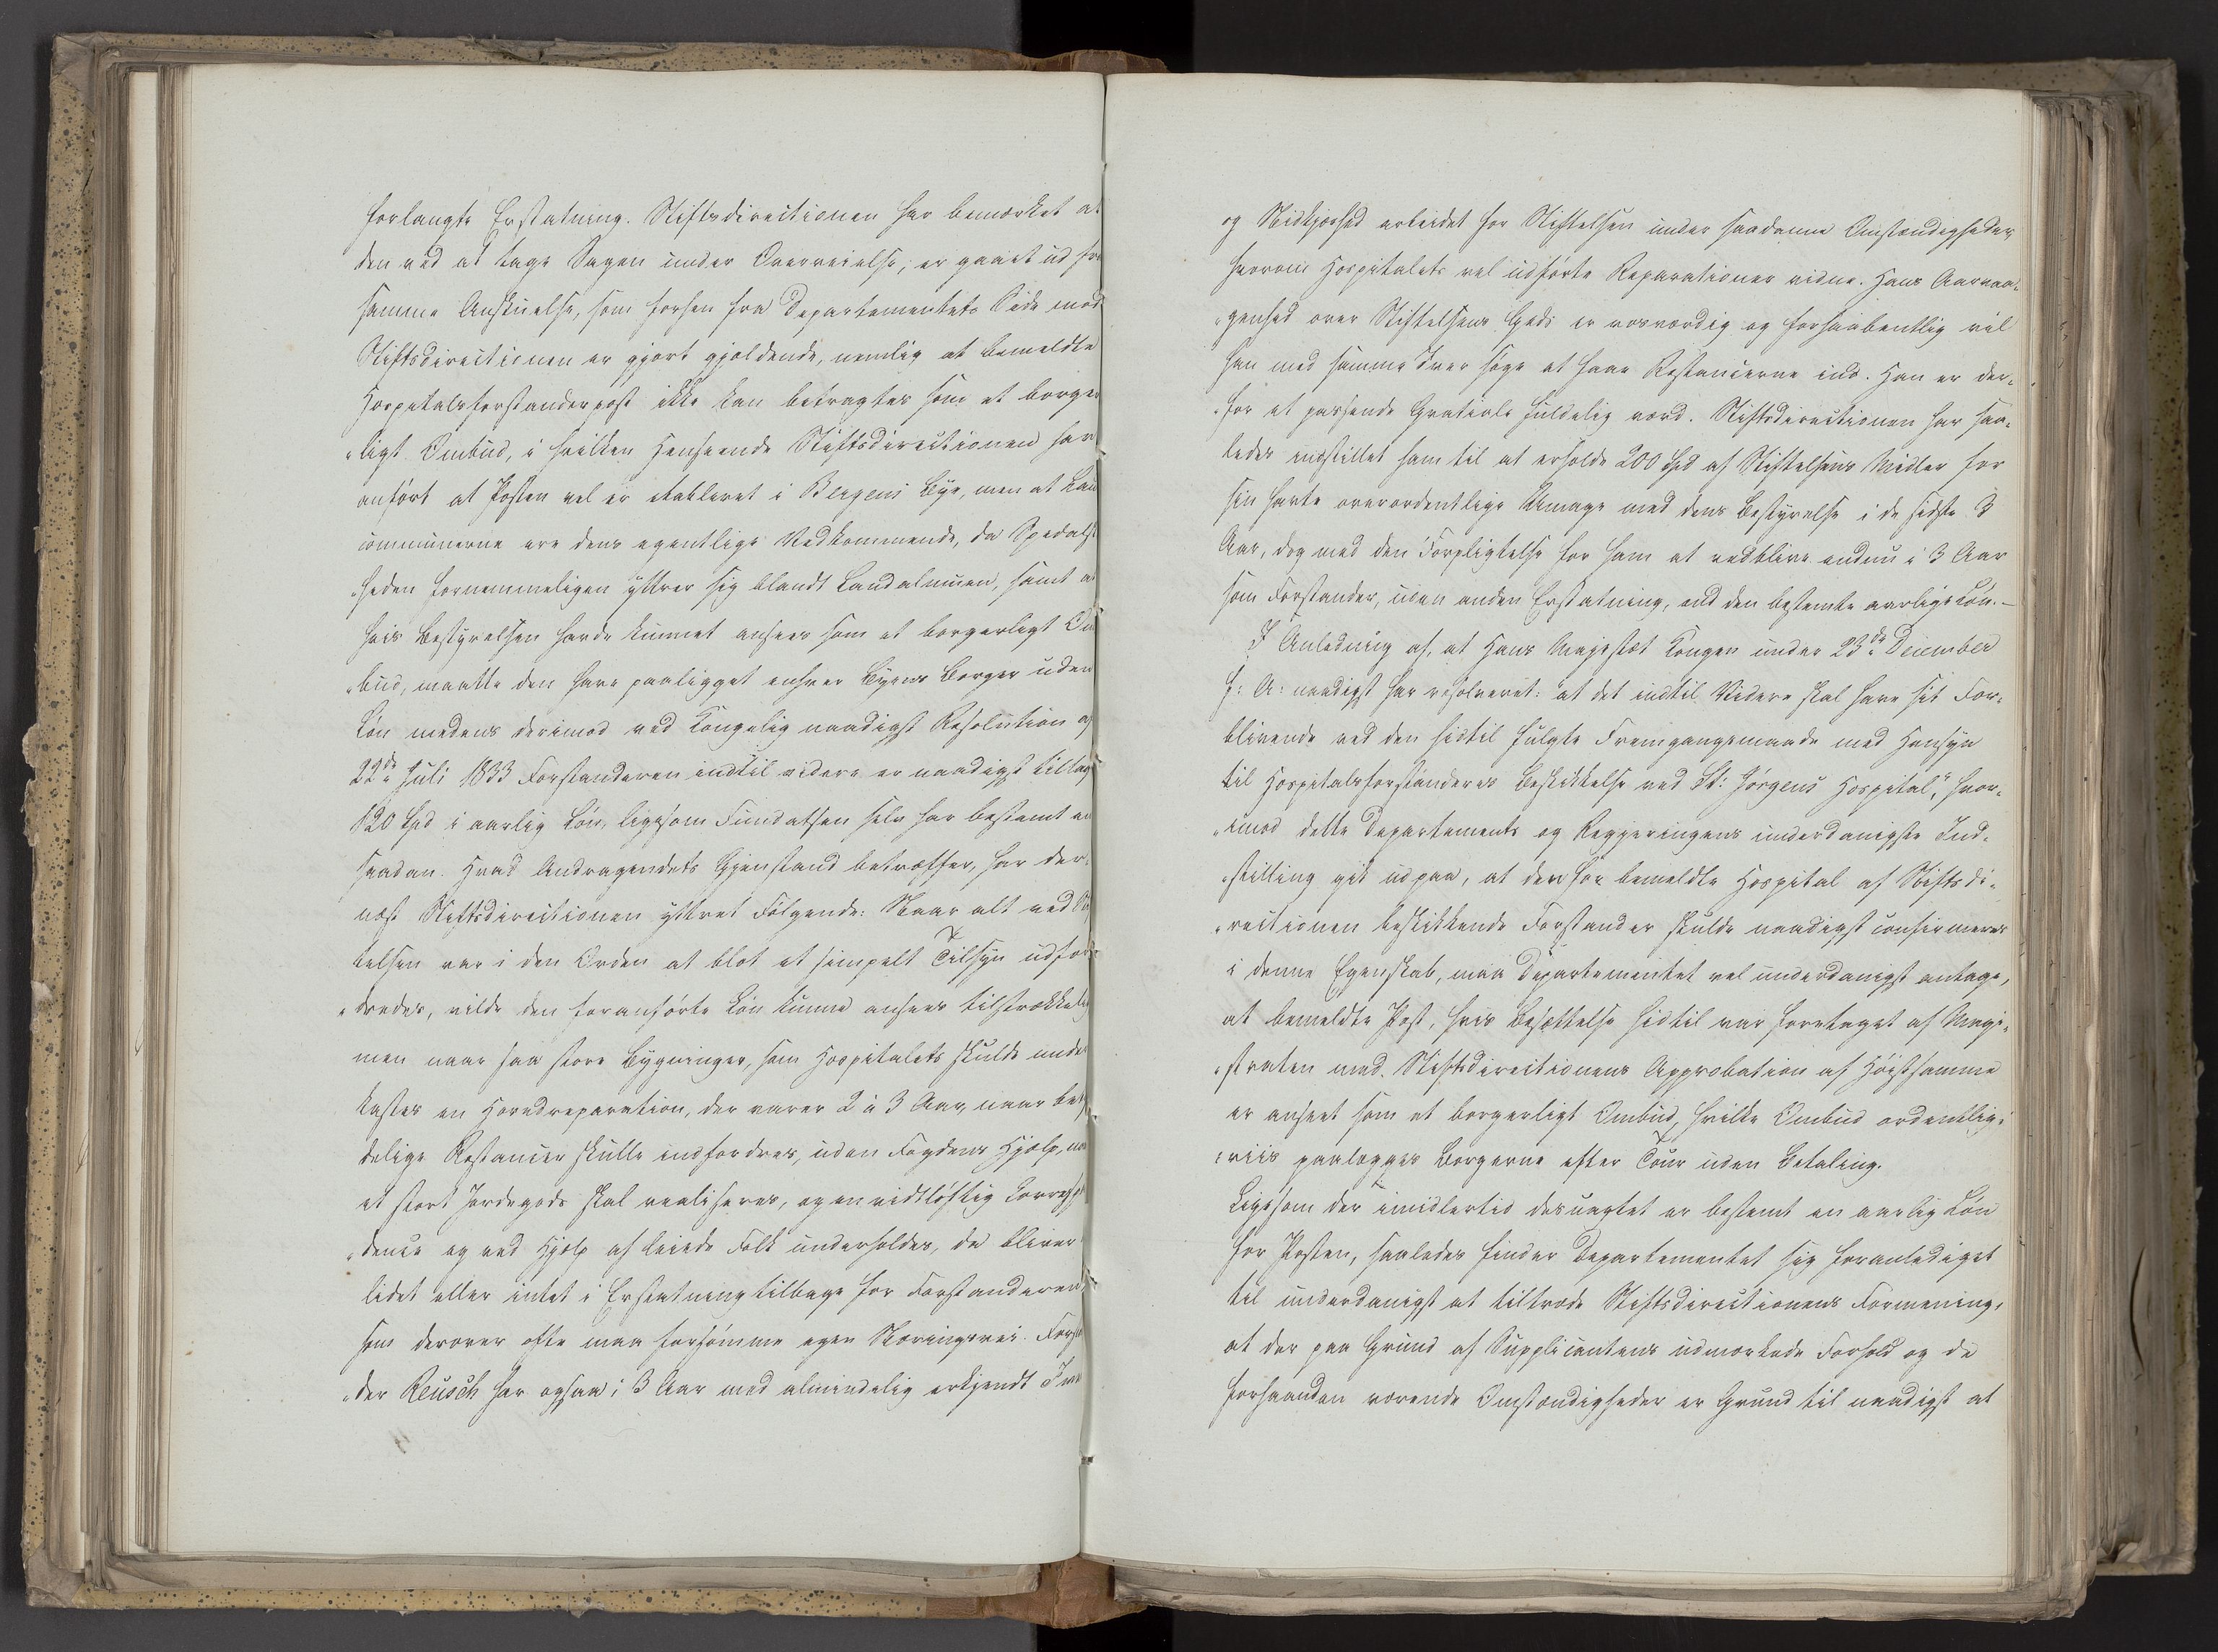 forlangte Erstatning. Stiftsdirectionen har bemærket at
den ved at tage Sagen under Overveielse, er gaaet ud fra
samme Anskuelse, som forhen fra Departementets Side mod
Stiftsdirectionen er gjort gjældende, nemlig at bemeldte
Hospitalsforstanderpost ikke kan betragtes som et borger
"ligt Ombud, i hvilken Henseende Stiftsdirectionen har
anført at Posten vel er etableret i Bergens Bye, men at Lan
communerne ere dens egentlige Vedkommende, da Spedalsk
"heden fornemmeligen yttrer sig blandt Landalmuen, samt at
hvis Bestyrelsen havde kunnet ansees som et borgerligt Om
"bud, maatte den have paaligget enhver Byens Borger uden
Løn medens derimod ved Kongelig naadigst Resolution af
22de Juli 1833 Forstanderen indtil videre er naadigst tillagt
120 Spd i aarlig Løn, ligesom Fundatsen selv har bestemt en
saadan. Hvad Andragendets Gjenstand betræffer, har der
næst Stiftsdirectionen yttret Følgende: Naar alt ved Stif
telsen var i den Orden at blot et simpelt Tilsyn udfor
"dredes, vilde den foranførte Løn kunne ansees tilstrækkelig
men naar saa store Bygninger, som Hospitalets skulde under
kastes en Hovedreparation, der varer 2 à 3 Aar, naar bety
delige Restancer skulle indfordres, uden Fogdens Hjælp, naar
et stort Jordegods skal realiseres, og en vidtløftig Correspon
"dence og ved Hjælp af leiede Folk underholdes, da bliver
lidet eller intet i Erstatning tilbage for Forstanderen,
som derover ofte maa forsømme egen Næringsvei. Forstan
"der Reusch har ogsaa i 3 Aar med almindelig erkjendt Iver
og Nidkjærhed arbeidet for Stiftelsen under saadanne Omstændigheder
hvorom Hospitalets vel udførte Reparationer vidne. Hans Aarvaa-
"genhed over Stiftelsens Gods er rosværdig og forhaabentlig vil
han med samme Iver søge at faae Restancerne ind. Han er der-
"for et passende Gratiale fuldelig værd. Stiftsdirectionen har saa-
ledes indstillet ham til at erholde 200 Spd af Stiftelsens Midler for
sin havte overordentlige Umage med dens Bestyrelse i de sidste 3
Aar, dog med den Forpligtelse for ham at vedblive endnu i 3 Aar
som Forstander, uden anden Erstatning, end den bestemte aarlige Løn.-
I Anledning af, at Hans Majestæt Kongen under 23de December
f: A: naadigst har resolveret: "at det indtil Videre skal have sit For-
blivende ved den hidtil fulgte Fremgangsmaade med Hensyn
til Hospitalsforstanderes Beskikkelse ved St: Jørgens Hospital," hvor-
"imod dette Departements og Regjeringens underdanigste Ind-
"stilling gik ud paa, at den for bemeldte Hospital af Stiftsdi-
"rectionen beskikkende Forstander skulde naadigst confirmeres
i denne Egenskab, maa Departementet vel underdanigst antage,
at bemeldte Post, hvis Besættelse hidtil var foretaget af Magi-
"straten med Stiftsdirectionens Approbation af Høistsamme
er anseet som et borgerligt Ombud, hvilke Ombud ordentlig-
"viis paalægges Borgerne efter Tour uden Betaling.
Ligesom der imidlertid desuagtet er bestemt en aarlig Løn
for Posten, saaledes finder Departementet sig foranlediget
til underdanigst at tiltræde Stiftsdirectionens Formening,
at der paa Grund af Supplicantens udmærkede Forhold og de
forhaanden værende Omstændigheder er Grund til naadigst at